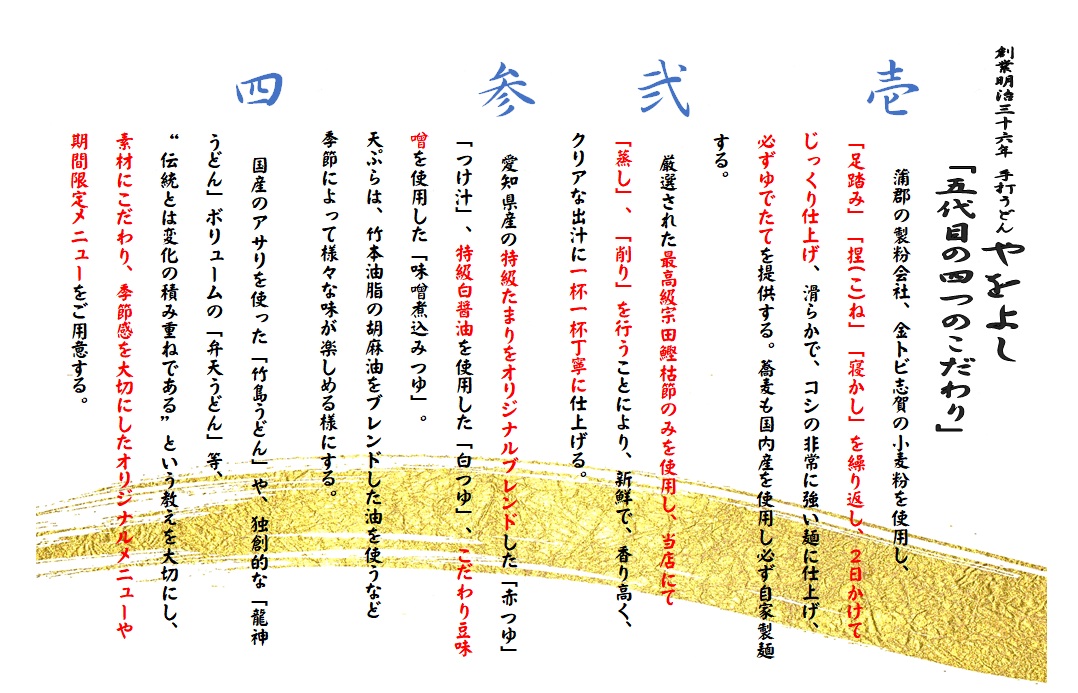 創業明治三十六年 手打うどん やをよし
「五代目の四つのこだわり」
壱
蒲郡の製粉会社、金トビ志賀の小麦粉を使用し、
「足踏み」「捏(こ)ね」「寝かし」を繰り返し、2日かけて
じっくり仕上げ、滑らかで、コシの非常に強い麺に仕上げ、
必ずゆでたてを提供する。蕎麦も国内産を使用し必ず自家製麺
する。
弐
厳選された最高級宗田鰹枯節のみを使用し、当店にて
「蒸し」、「削り」を行うことにより、新鮮で、香り高く、
クリアな出汁に一杯一杯丁寧に仕上げる。
参
愛知県産の特級たまりをオリジナルブレンドした「赤つゆ」
「つけ汁」、特級白醤油を使用した「白つゆ」、こだわり豆味
噌を使用した「味噌煮込みつゆ」。
天ぷらは、竹本油脂の胡麻油をブレンドした油を使うなど
季節によって様々な味が楽しめる様にする。
四
国産のアサリを使った「竹島うどん」や、独創的な「龍神
うどん」ボリュームの「弁天うどん」等、
“伝統とは変化の積み重ねである”という教えを大切にし、
素材にこだわり、季節感を大切にしたオリジナルメニューや
期間限定メニューをご用意する。